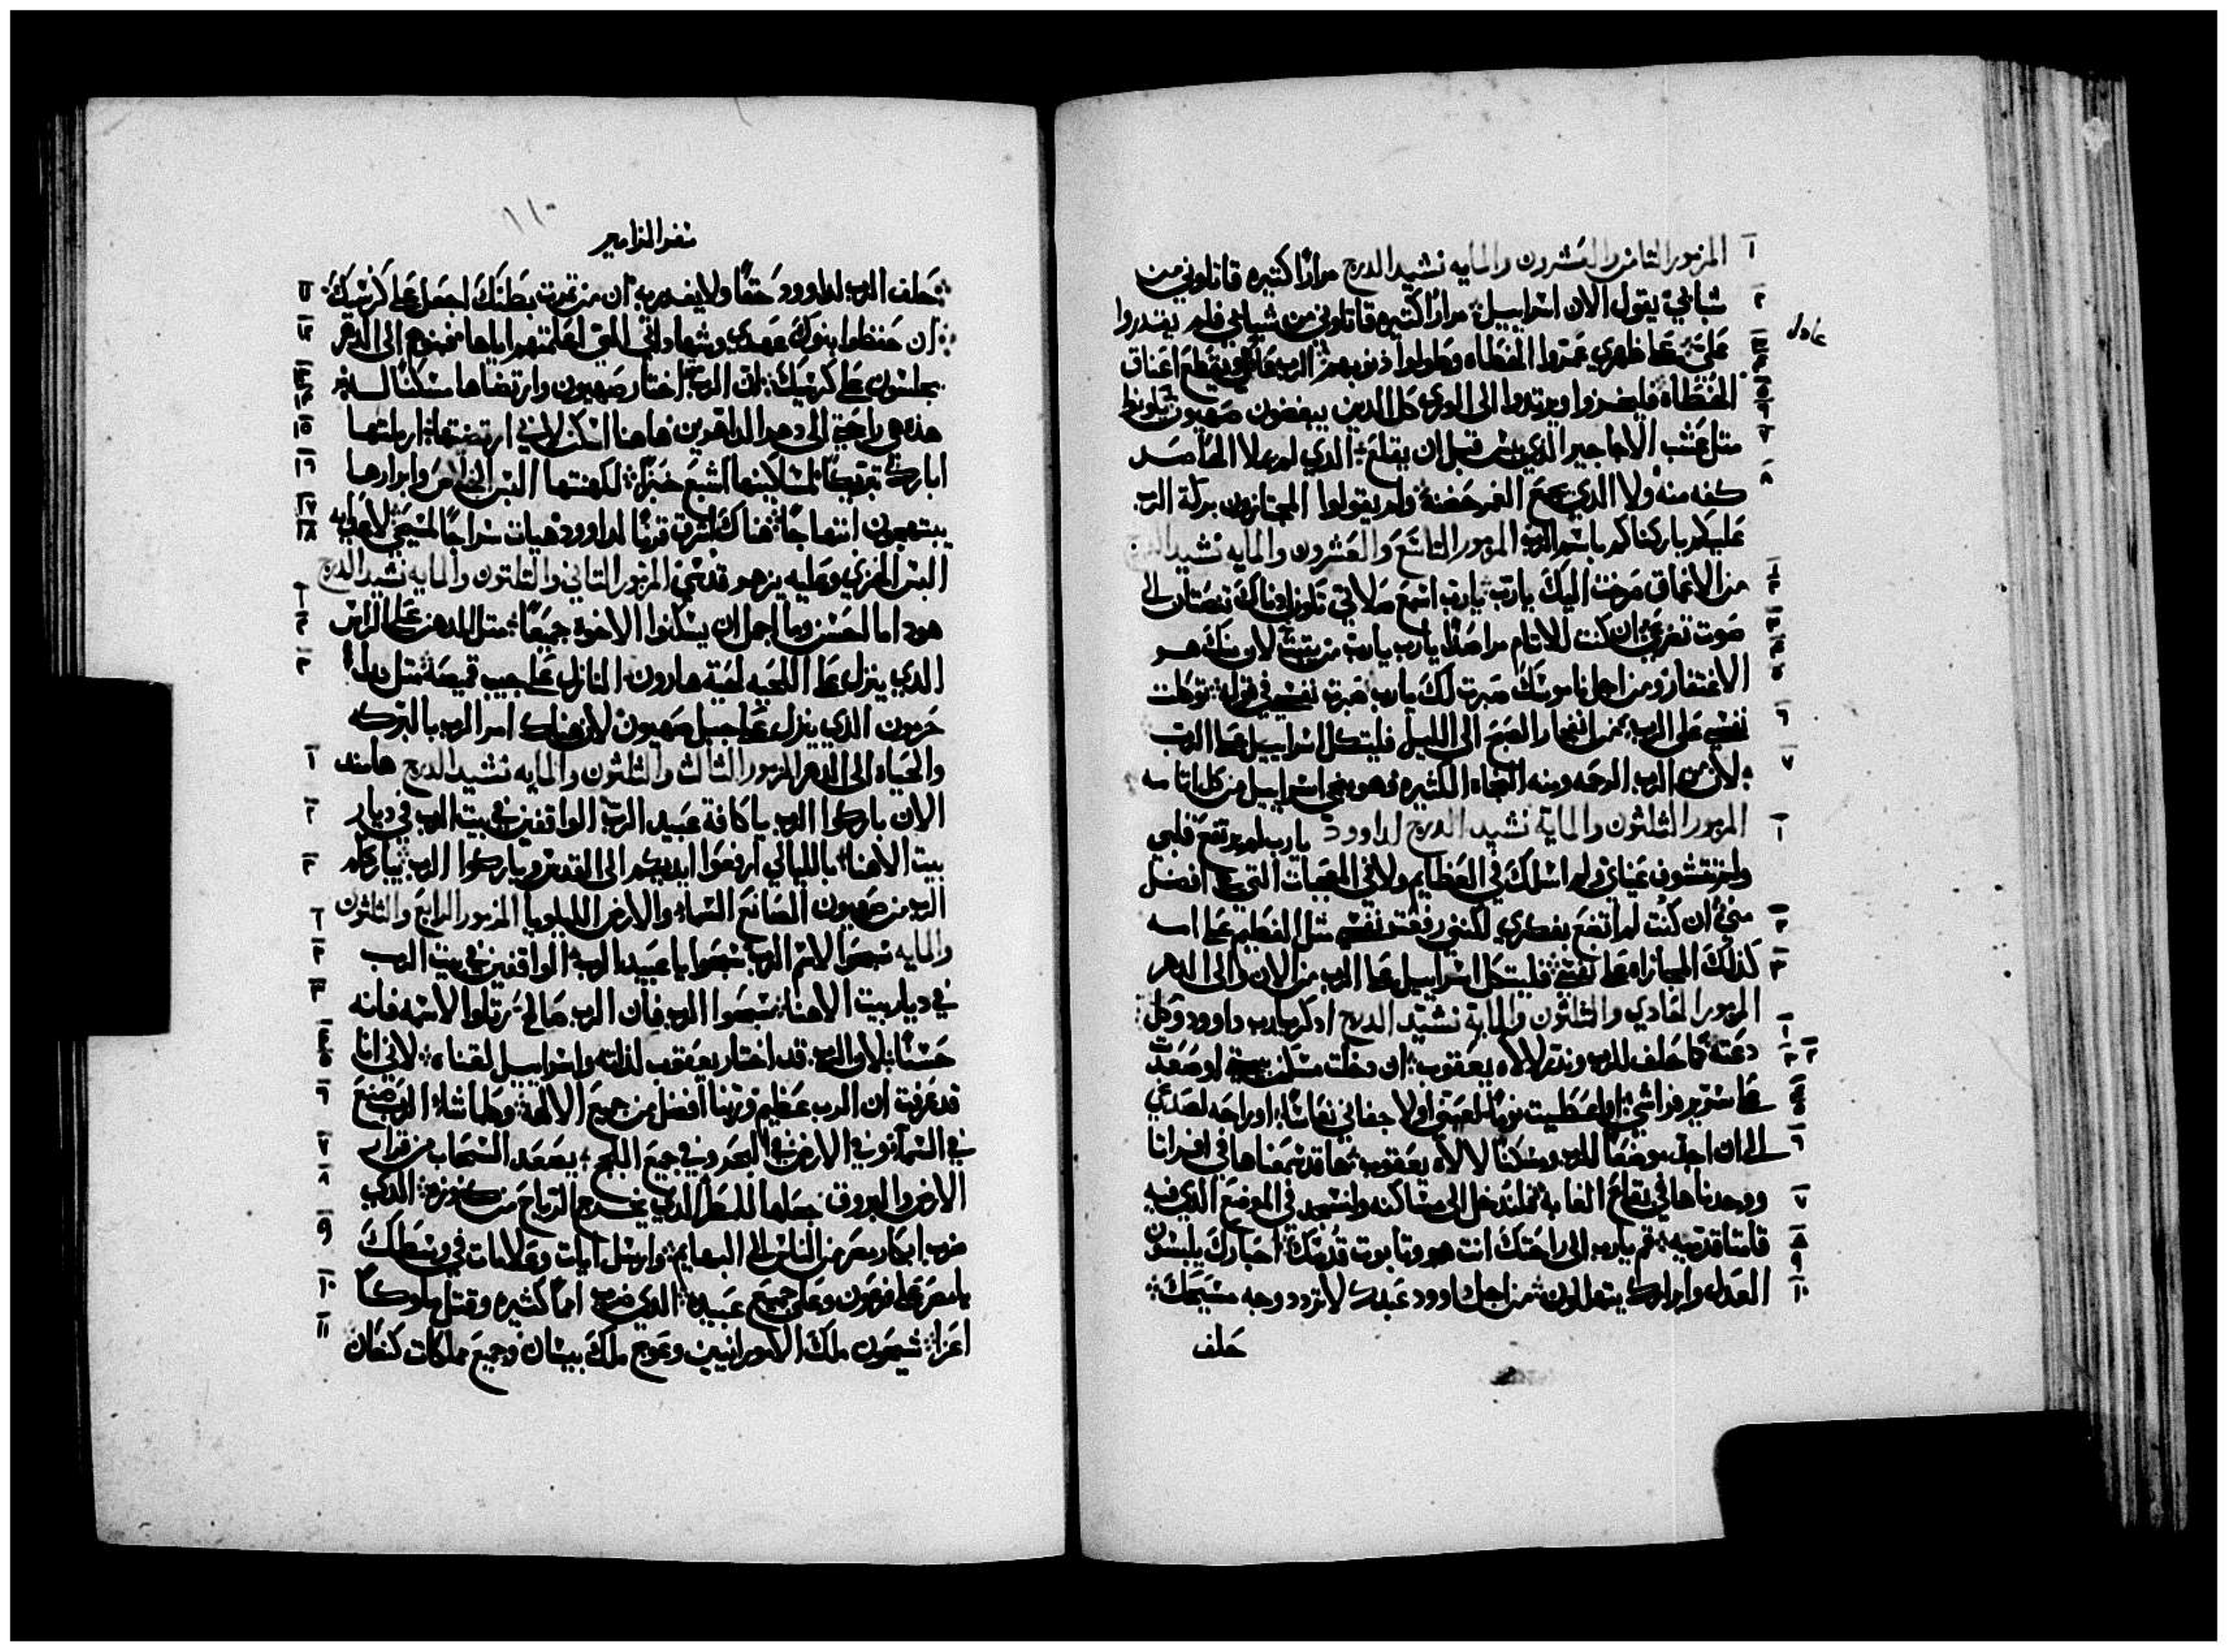 المزمور الثامن والعشرون والمايه نشيد الدرج مرارًا كتيره قاتلوني من
شبابي يقول الان اسراييل مرارًا كتيره قاتلوني من شبابي فلم يقدروا
عليّ على ظهري الخطاه وطولوا ذنوبهم الرب يقطع اعناق
الخطاه فليخزوا ويرتدوا الى الورى كل الدين يبغضون صهيون
متل عشب الاجاجير الدي قبل ان يقلع الدي لم يملا الحاصد
كفه منه ولا الدي يجمع الغمر حضنه ولم يقولوا المجتازون بركة الرب
عليكم باركناكم باسم الرب المزمور التاسع والعشرون والمايه نشيد الدرج
من الاعماق صرخت اليك يارب يارب اسمع صلاتي
صوت تضرعي ان كنت للاتام يارب يارب من يتبت لان منك هو
الاغتفار ومن اجل ناموسك صبرت لك يارب صبرت نفسي في قوله توكلت
نفسي على الرب من انفجار الصبح الى الليل فليتكل اسراييل على الرب
لان من الرب الرحمه ومنه النجاه الكتيره وهو ينجي اسراييل من كل اتامه
المزمور الثلثون والماية نشيد الدرج لداوود يارب لم يرتفع قلبي
ولم عيناي ولم اسلك في العظايم ولا في العجبات التي هي افضل
مني ان كنت لم اتضع بفكري لكنني رفعت نفسي متل الفطيم على امه
كذلك المجازاه على نفسي فليتكل اسراييل على الرب من الان والى الدهر
المزمور الحادي والثلثون والماية نشيد الدرج ادكر يارب داوود وكل
دعته كما حلف للرب ونذر لالاه يعقوب ان دخلت مسكن بيتي او صعدت
على سرير فراشي او اعطيت نومًا لعيني او لاجفاني نعاسًا او راحه لصدغي
الى ان اجد موضعًا للرب ومسكنًا لالاه يعقوب ها قد سمعناها في افراتا
ووجدناها في بقاع الغابه فلندخل الى مساكنه ولنسجد في الموضع الذي فيه
قامتا قدميه قم يارب الى راحتك انت هو وتابوت قدسك احبارك يلبسون
العدل وابرارك يتهللون من اجل داوود عبدك لا تردد وجه مسيحك
حلف
سفر المزامير
حلف الرب لداوود حقًا ولا يغدر به ان من تمرت بطنك اجعل على كرسيك
ان حفظوا بنوك عهدي وشهاداتي التي اعلمتهم اياها فبنوهم الى الدهر
يجلسون على كرسيك لان الرب اختار صهيون وارتضاها مسكنًا له
هذه هي راحتي الى دهر الداهرين هاهنا اسكن لاني ارتضيتها ارملتها
ابارك تبريكًا لمساكينها اشبع خبزًا لكهنتها البس الخلاص وابرارها
يبتهجون ابتهاجًا هناك اشرق قرنًا لداوود هيات سراجًا لمسيحي لاعدايه
البس الخزي وعليه يزهر قدسي المزمور التاني والتلتون والمايه نشيد الدرج
هودا ما احسن وما اجمل ان يسكنوا الاخوة جميعًا متل الدهن على الراس
الدي ينزل على اللحيه لحية هارون النازل على جيب قميصه متل
حرمون الذي ينزل على جبل صهيون لان هناك امر الرب بالبركه
والحياه الى الدهر المزمور الثالث والثلثون والمايه نشيد الدرج هامند
الان باركوا الرب يا كافة عبيد الرب الواقفين في بيت الرب في ديار
بيت الاهنا بالليالي ارفعوا ايديكم الى القدس وباركوا الرب يبارككم
الرب من صهيون الصانع السماء والارض الليلويا المزمور الرابع والثلثون
والمايه سبحوا لاسم الرب سبحوا يا عبيد الرب الواقفين في بيت الرب
في ديار بيت الاهنا سبحوا الرب فان الرب صالح رتلوا لاسمه فانه
حسنًا لان الرب قد اختار يعقوب لذاته واسراييل لقناه لاني انا
قد عرفت ان الرب عظيم وربنا افضل من جميع الالهة وكلما شاء الرب صنع
في السما وفي الارض في البحر وفي جميع اللجج يصعد السحاب من قرار
الارض والبروق جعلها للمطر الدي يخرج الرياح من كنوزه الدي
ضرب ابكار مصر من الناس الى البهايم وارسل ايات وعلامات في وسطك
يا مصر على فرعون وعلى جميع عبيده الدي ضرب امًا كثيره وقتل ملوكًا
اعزا شيحون ملك الامورانيين وعوج ملك بيسان وجميع مملكات كنعان